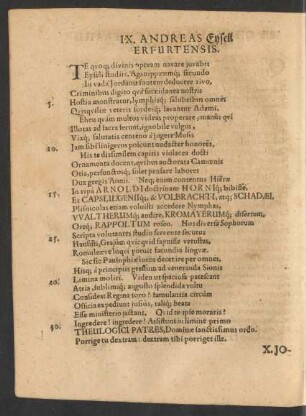 IX. ANDREAS Eysell
ERFURTENSIS.
TE quoq; divinis operam navare juvabit
Eyselli studiis, Aganippæumq; secundo
In vada Jordanis fontem deducere rivo,
Criminibus digito quâ succedanea nostris
5. Hostia monstratur, lymphisq; salubribus omnes
Quisquiliæ veteris sordesq; lavantur Adami.
Eheu quàm multos videas properare, manus qui
Illotas ad sacra ferunt, ignobile vulgus,
Vixq; salutatis centeno à jugere Mosis
10. Jam sibi finigeros poscunt audacter honores,
His te dissimilem capitis violacea docti
Ornamenta docent, apibus auctorata Camœnis
Otia, perpetuósq; solet pensare labores
Dux gregis Aonii. Neq; enim contentus
15. In rupe ARNOLDI doctrinam HORNIq; bibisse.
Et CAPSI, IGENIIq; & VOLBRACHTI, atq; SCHADÆI,
Plisnicolas etiam voluisti accedere Nymphas,
VVALTHERUMq; audire, KROMAYERUMq; disertum,
Oreq; RAPPOLTUM roseo. Nos diversa Sophorum
25. Scripta volutantes studio fervente secutus
Hausisti, Grajus quicquid sapuisse vetustus,
Romuleæve loqui potuit facundia linguæ.
Sic sic Pausophiæ licuit decurrere per omnes,
Hisq; à principiis gressum ad veneranda Sionis
20. Limina moliri. Viden ut spaciosis patescant
Atria, sublimisq; augusto splendida vultu
Consideat Regina toro? famulantia circum
Officia expediunt jussus, taliq; beata
Esse ministerio jactant. Quid te ipse moraris?
Ingredere! ingredere! Assistunt in limine primo
30. THEOLOGICI PATRES, Dominæ sanctissimus ordo.
Porrige tu dextram: dextram tibi porriget ille.
X. JO-